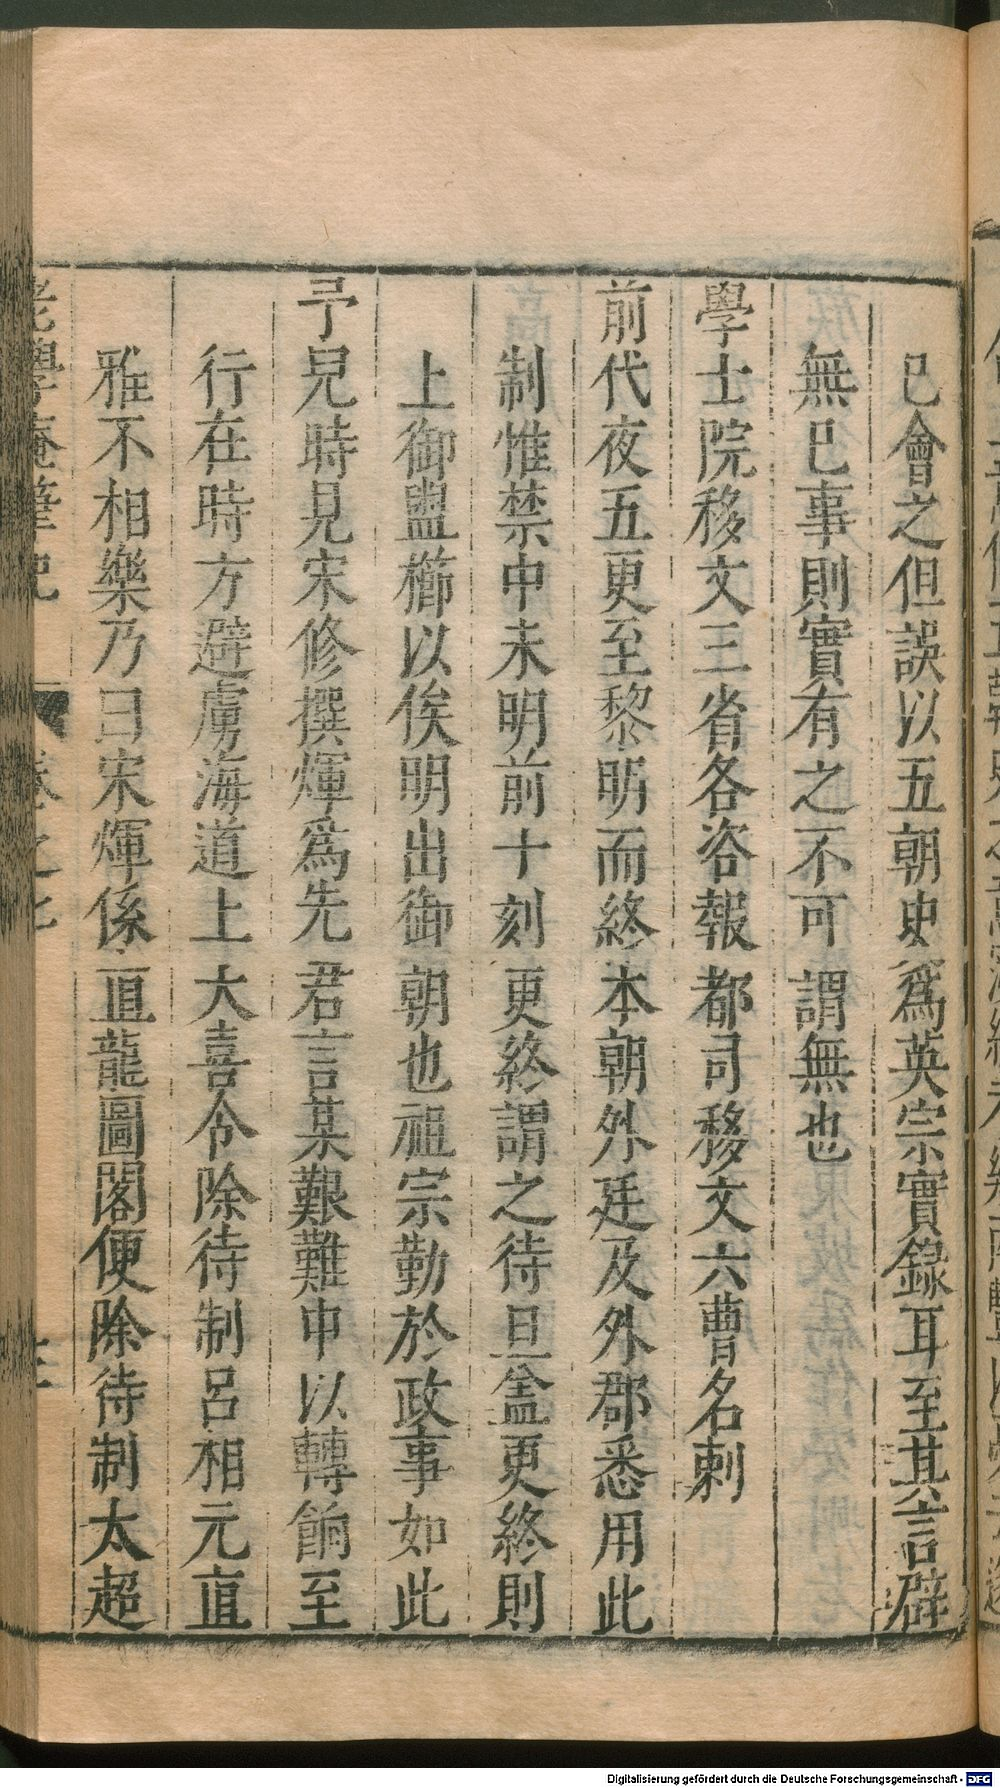 已會之但誤以五朝史爲英宗實錄耳至其言辟
無巴事則實有之不可謂無也
學士院移文三省各咨報都司移文六曹名刺
前代夜五更至黎明而終本朝外廷及外郡悉用此
制惟禁中未明前十刻更終謂之待旦盖更終則
上御盥櫛以俟明出御朝也祖宗勤於政事如此
予兒時見宋修撰煇爲先君言某艱難中以轉餉至
行在時方避虜海道上大喜令除待制呂相元直
雅不相樂乃曰宋煇係直龍圖閣便除待制太超
老學庵筆記 卷之七
Digitalisierung gefördert durch die Deutsche Forschungsgemeinschaft - DFG